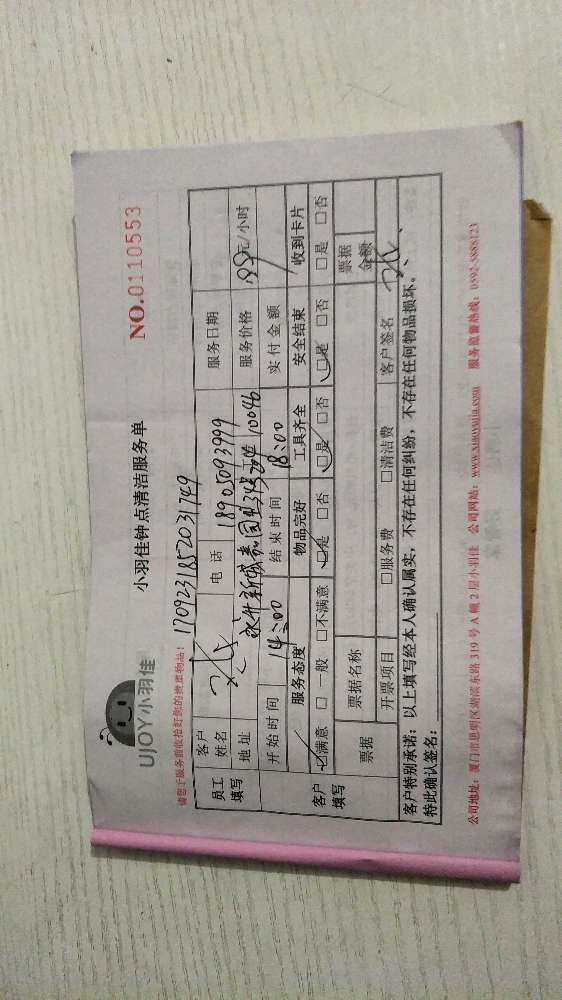 UJOY小羽佳
小羽佳钟点清洁服务单
NO.0110553
请您于服务前收拾好您的贵重物品！
170923185203 1749
员工填写
客户姓名
电话 18905093999
服务日期
地址
永升新城嘉园
1004b
服务价格
元/小时
开始时间 14:00
结束时间 18:00
实付金额
客户填写
服务态度 物品完好 工具齐全 安全结束 收到卡片
☑满意 □一般 □不满意 ☑是 □否 ☑是 □否 ☑是 □否 □是 □否
票据 票据名称 票据金额
开票项目 □服务费 □清洁费 客户签名
客户特别承诺：以上填写经本人确认属实，不存在任何纠纷，不存在任何物品损坏。
特此确认签名：
公司地址：厦门市思明区湖滨东路 319 号 A 幢 2 层小羽佳 公司网站：www.xiaoyujia.com 服务监督热线：0592-5888123